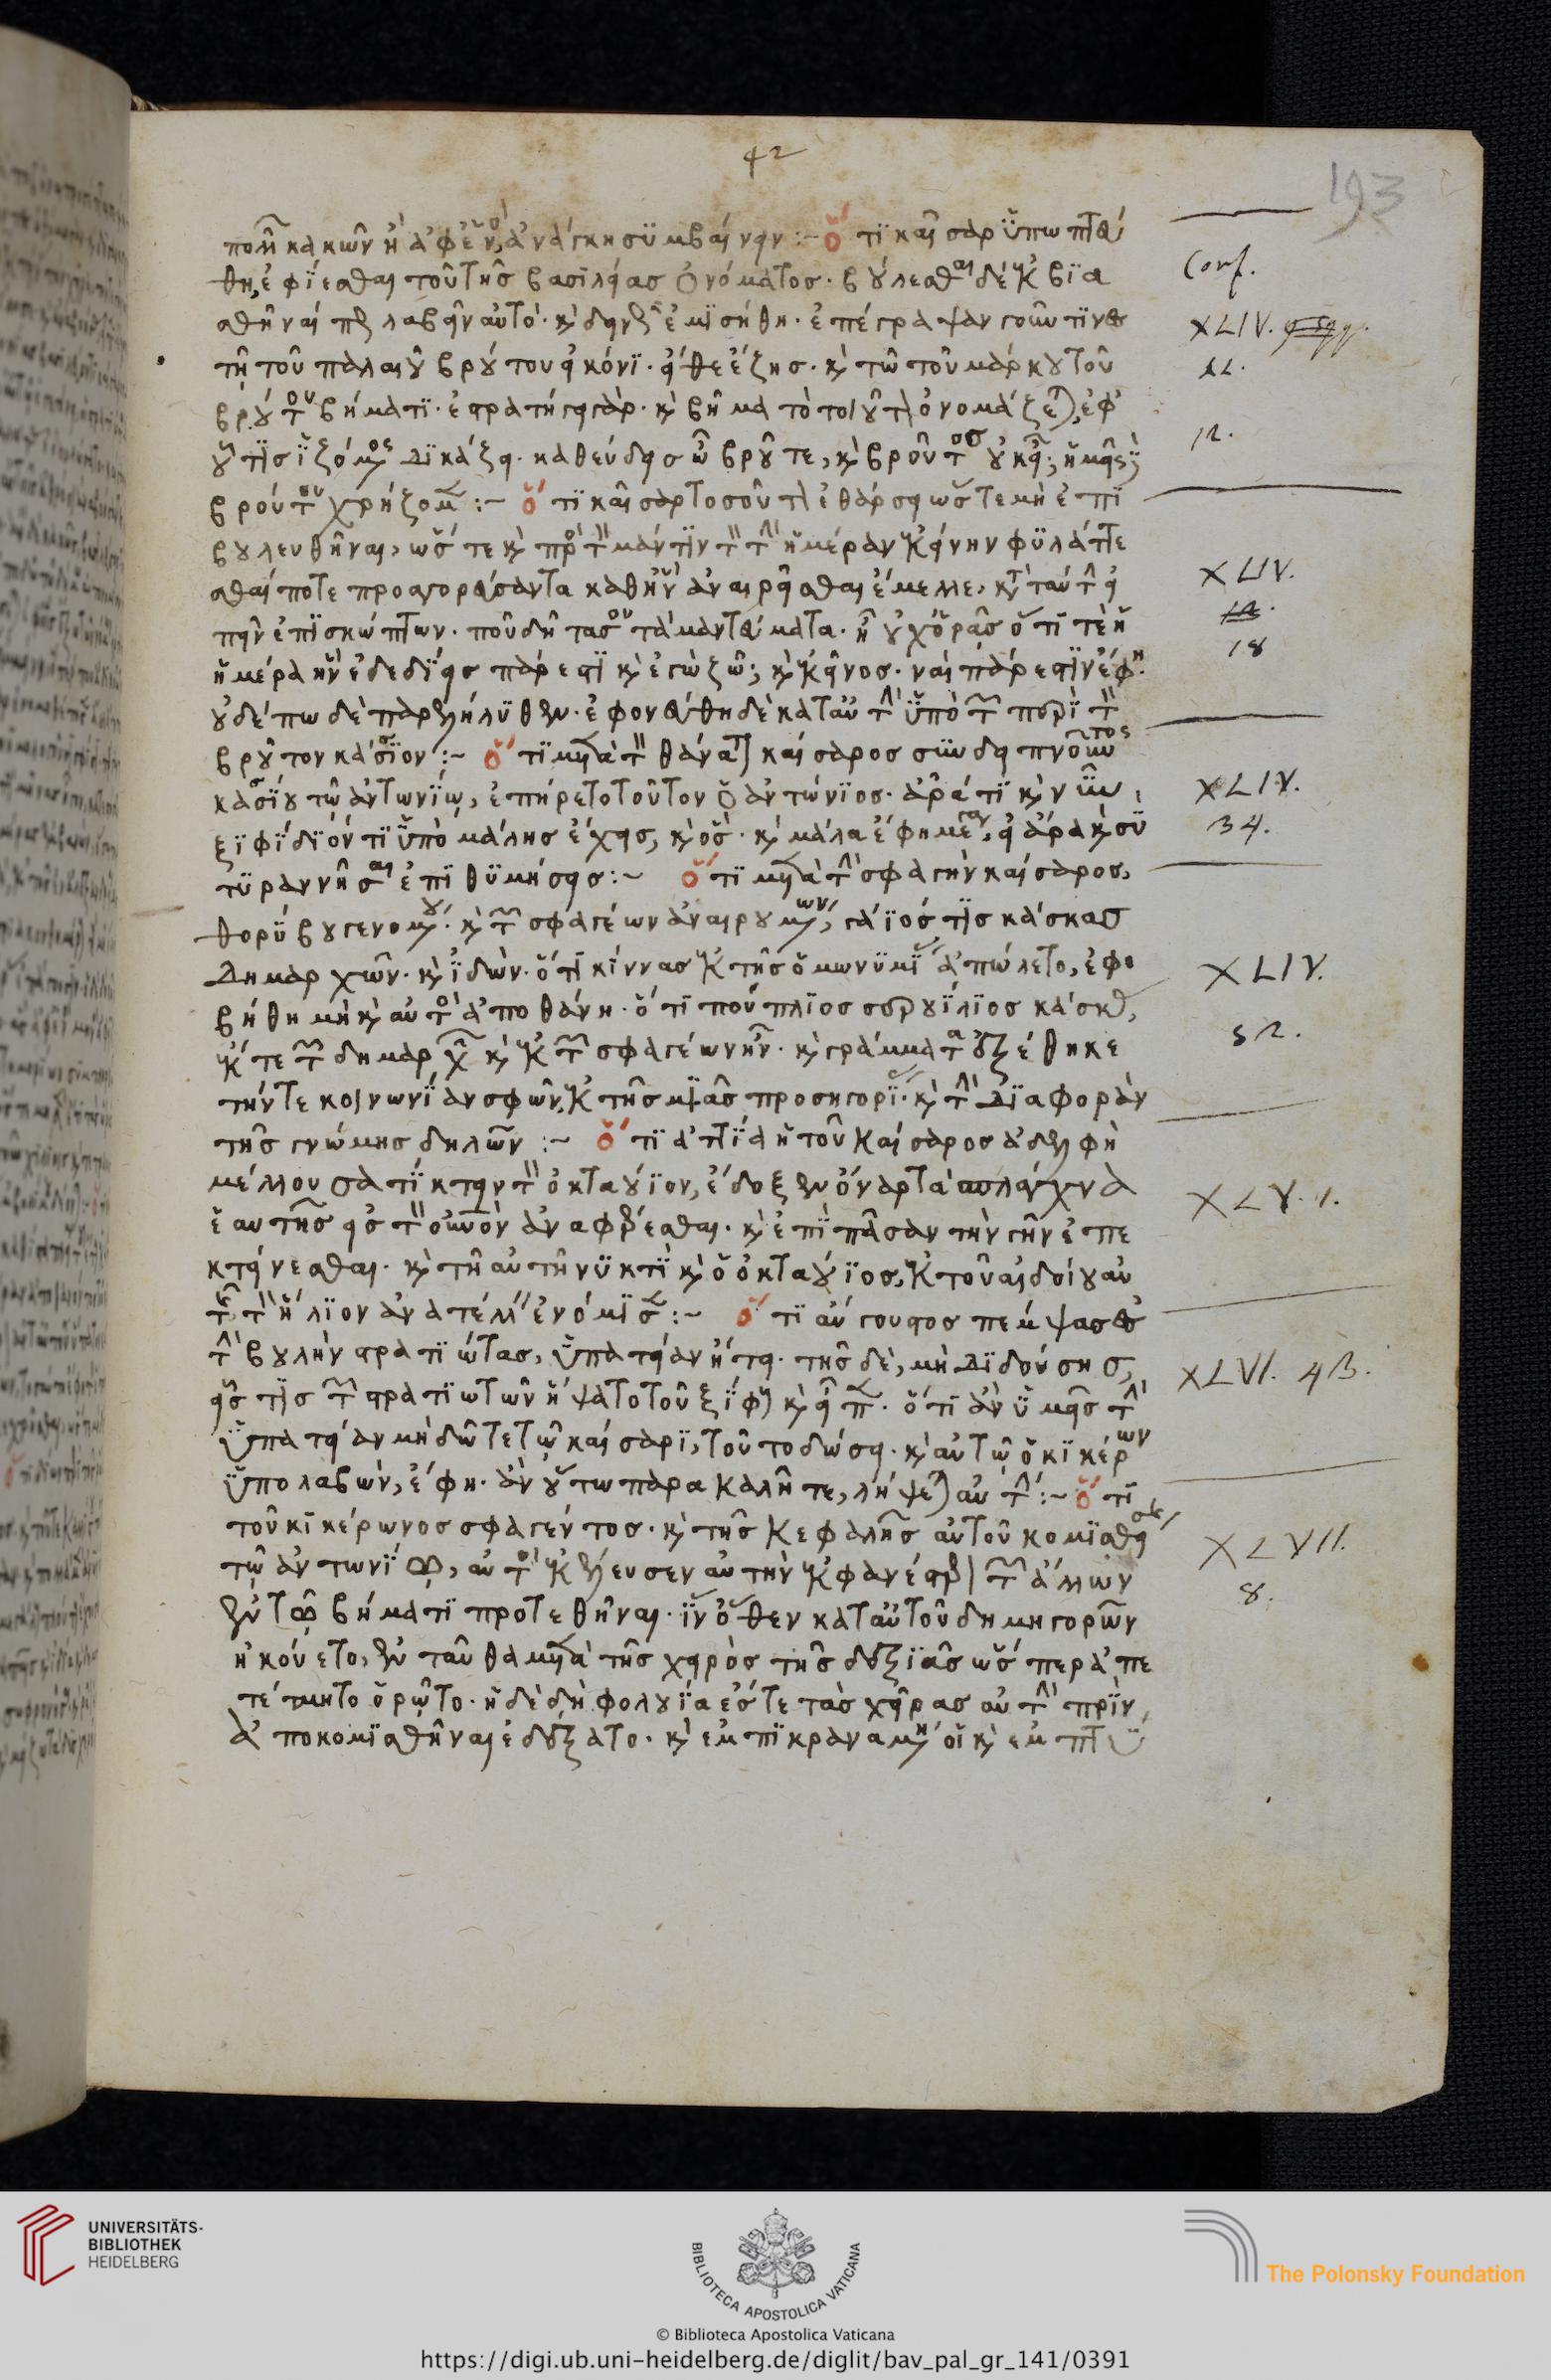 πολλῆ κακῶν ἢ ἀφ' ἑνὸς ἀνάγκη συμβαίνειν :~ ὅτι καῖσαρ ὑπωπτεύ
θη, ἐφίεσθαι τοῦ τῆς βασιλείας ὀνόματος. βούλεσθαι δὲ ἐκβια
σθῆναί πως λαβεῖν αὐτό. καὶ δεινῶς ἐμισήθη. ἐπέγραψαν γοῦν τινες
τῆ τοῦ παλαιοῦ βρούτου εἰκόνι. εἴθε ἔζης. καὶ τῶ τοῦ μάρκου τοῦ
βρούτου βήματι. ἐστρατήγει γὰρ. καὶ βῆμα τὸ τοιοῦτον ὀνομάζεται, ἐφ'
οὗ τις ἱζόμενος δικάζει. καθεύδεις ὦ βροῦτε, καὶ βροῦτος οὐκ εἶ; ἡμεῖς
βρούτου χρήζομεν :~ ὅτι καῖσαρ τοσοῦτον ἐθάρσει ὥστε μὴ ἐπι
βουλευθῆναι, ὥστε καὶ πρὸς τὸν μάντιν τὸν τὴν ἡμέραν ἐκείνην φυλάττε
σθαί ποτε προαγορεύσαντα καθ' ἣν ἀναιρεῖσθαι ἔμελλε, κατὰ ταύτην εἰ
πεῖν ἐπισκώπτων. ποῦ δῆτα σοῦ τὰ μαντεύματα. ἢ οὐχ ὁρᾶς ὅτι τε ἡ
ἡμέρα ἣν ἐδεδίεις πάρεστι καὶ ἐγὼ ζῶ; καὶ ἐκεῖνος. ναὶ πάρεστιν ἔφη.
οὐδέπω δὲ παρελήλυθεν. ἐφονεύθη δὲ κατ' αὐτὴν ὑπὸ τῶν περὶ τὸν
βροῦτον κάσσιον :~ ὅτι μετὰ τὸν θάνατον καίσαρος συνδειπνοῦντος
κασσίου τῶ ἀντωνίω, ἐπήρετο τοῦτον ὁ ἀντώνιος. ἆρά τι καὶ νῦν
ξιφίδιόν τι ὑπὸ μάλης ἔχεις, καὶ ὅς. καὶ μάλα ἔφη μέγα, εἰ ἄρα καὶ σὺ
τυραννῆσαι ἐπιθυμήσεις :~ ὅτι μετὰ τὴν σφαγὴν καίσαρος,
θορύβου γενομένου. καὶ τῶν σφαγέων ἀναιρουμένων, γάιός τις κάσκας
δημαρχῶν. καὶ ἰδὼν. ὅτι κίννας ἐκ τῆς ὁμωνυμίας ἀπώλετο, ἐφο
βήθη μὴ καὶ αὐτὸς ἀποθάνη. ὅτι πούπλιος σερουίλιος κάσκας,
ἔκ τε τῶν δημάρχων καὶ ἐκ τῶν σφαγέων ἦν. καὶ γράμματα ἐξέθηκε
τήν τε κοινωνίαν σφῶν ἐκ τῆς μιᾶς προσηγορίας. καὶ τὴν διαφορὰν
τῆς γνώμης δηλῶν :~ ὅτι ἀττία ἡ τοῦ καίσαρος ἀδελφὴ
μέλλουσα τίκτειν τὸν ὀκταούιον, ἔδοξεν ὄναρ τὰ σπλάγχνα
ἑαυτῆς εἰς τὸν οὐρανὸν ἀναφέρεσθαι. καὶ ἐπὶ πᾶσαν τὴν γῆν ἐπε
κτείνεσθαι. καὶ τῆ αὐτῆ νυκτὶ καὶ ὁ ὀκταούιος, ἐκ τοῦ αἰδοίου αὐ
τῆς τὸν ἥλιον ἀνατέλλειν ἐνόμισεν :~ ὅτι αὔγουστος πέμψας ἐς
τὴν βουλὴν στρατιώτας, ὑπατείαν ἤτει. τῆς δὲ, μὴ διδούσης,
εἷς τις τῶν στρατιωτῶν ἥψατο τοῦ ξίφους καὶ εἶπεν. ὅτι ἂν ὑμεῖς τὴν
ὑπατείαν μὴ δῶτε τῶ καίσαρι, τοῦτο δώσει. καὶ αὐτῶ ὁ κικέρων
ὑπολαβών, ἔφη. ἂν οὕτω παρακαλῆτε, λήψεται αὐτήν :~ ὅτι
τοῦ κικέρωνος σφαγέντος. καὶ τῆς κεφαλῆς αὐτοῦ κομισθείσης
τῶ ἀντωνίω, αὐτὸς ἐκέλευσεν αὐτὴν ἐκφανέστερον τῶν ἄλλων
ἐν τῶ βήματι προτεθῆναι. ἵν' ὅθεν κατ' αὐτοῦ δημηγορῶν
ἠκούετο, ἐνταῦθα μετὰ τῆς χειρὸς τῆς δεξιᾶς ὥσπερ ἀπε
τέτμητο ὁρῶτο. ἡ δὲ δὴ φολουία ἔς τε τὰς χεῖρας αὐτὴν πρὶν
ἀποκομισθῆναι ἐδέξατο. καὶ ἐμπικραναμένη οἱ καὶ ἐμπτύ
42
193
Conf.
XLIV.
11.
12.
XLIV.
18
XLIV.
34.
XLIV.
52.
XLV. 1.
XLVI. 43.
XLVII.
8.
UNIVERSITÄTS-
BIBLIOTHEK
HEIDELBERG
BIBLIOTECA APOSTOLICA VATICANA
© Biblioteca Apostolica Vaticana
The Polonsky Foundation
https://digi.ub.uni-heidelberg.de/diglit/bav_pal_gr_141/0391